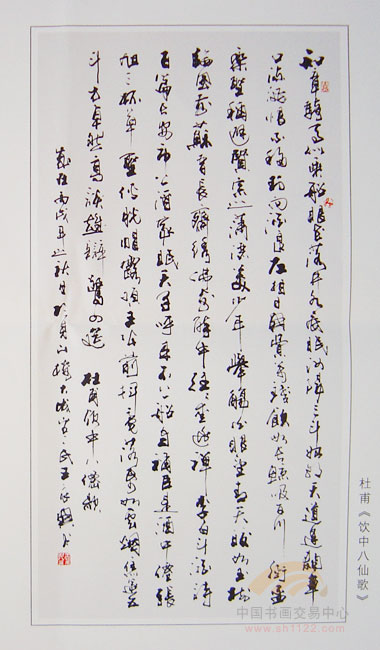 知章騎馬似乘船眼花落井水底眠汝陽三斗始朝天道逢麴車
口流涎恨不移封向酒泉左相日興費萬錢飲如長鯨吸百川銜盃
樂聖稱避賢宗之瀟灑美少年舉觴白眼望青天皎如玉樹
臨風前蘇晉長齋繡佛前醉中往往愛逃禪李白斗酒詩
百篇長安市上酒家眠天子呼來不上船自稱臣是酒中僊張
旭三杯草聖傳脫帽露頂王公前揮毫落紙如雲煙焦遂五
斗方卓然高談雄辯驚四筵 杜甫飲中八僊歌
歲在丙戌年之秋月於
杜甫《饮中八仙歌》
中国书画交易中心
www.sh1122.com